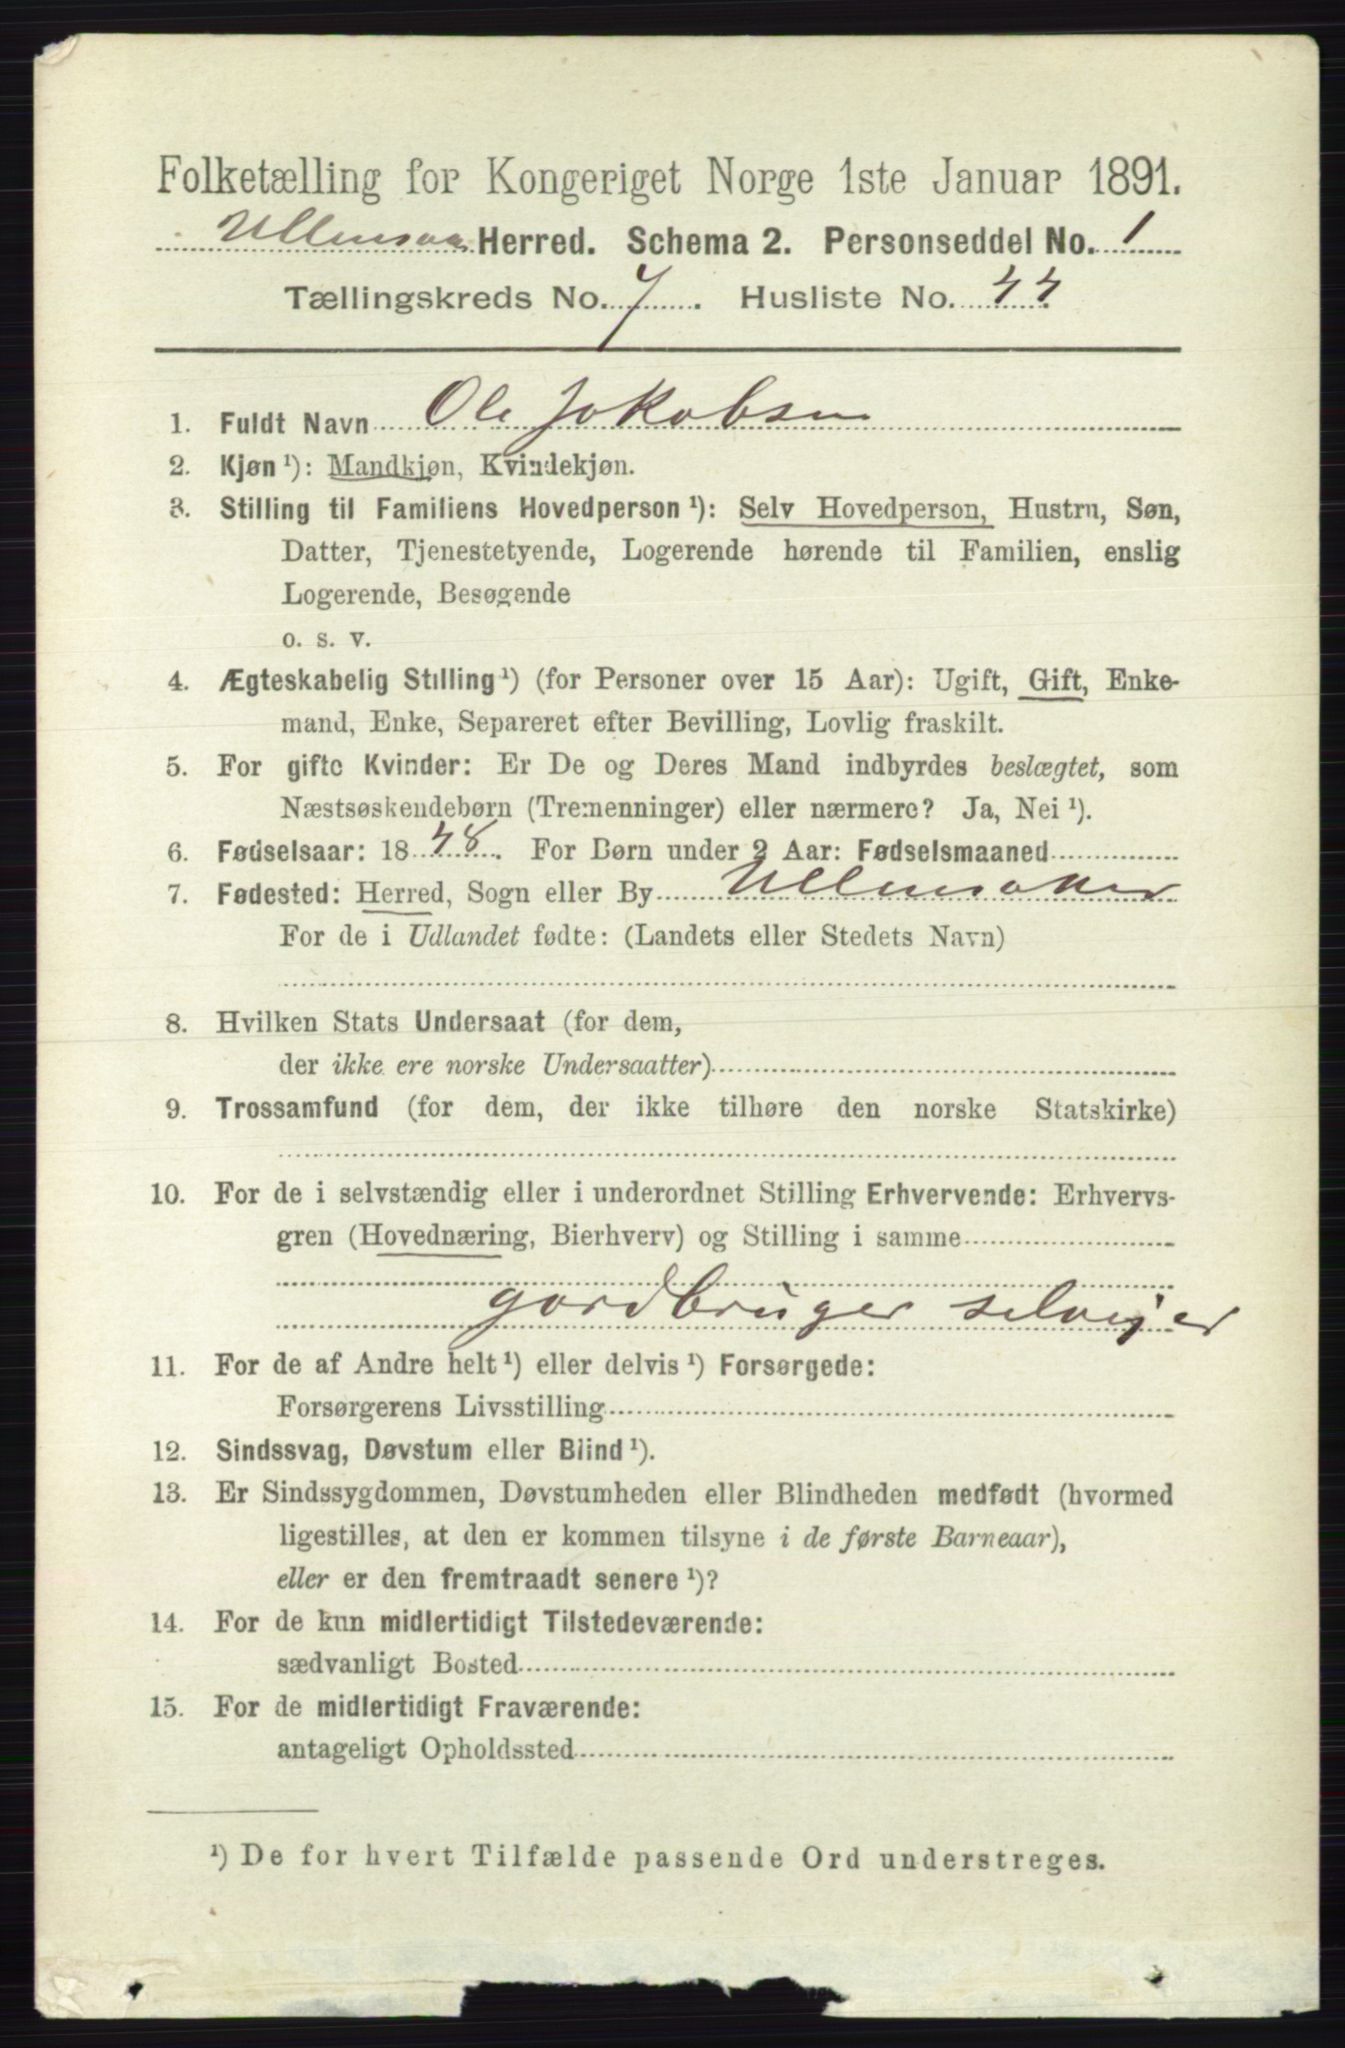 Folketælling for Kongeriget Norge 1ste Januar 1891.
Ullensaa Herred. Schema 2. Personseddel No. 1
Tællingskreds No. 7. Husliste No. 44
1. Fuldt Navn Ole Jakobsen
2. Kjøn¹): Mandkjøn, Kvindekjøn.
3. Stilling til Familiens Hovedperson¹): Selv Hovedperson, Hustru, Søn,
Datter, Tjenestetyende, Logerende hørende til Familien, enslig
Logerende, Besøgende
o. s. v.
4. Ægteskabelig Stilling¹) (for Personer over 15 Aar): Ugift, Gift, Enke-
mand, Enke, Separeret efter Bevilling, Lovlig fraskilt.
5. For gifte Kvinder: Er De og Deres Mand indbyrdes beslægtet, som
Næstsøskendebørn (Tremenninger) eller nærmere? Ja, Nei¹).
6. Fødselsaar: 1848. For Børn under 2 Aar: Fødselsmaaned
7. Fødested: Herred, Sogn eller By Ullensaker
For de i Udlandet fødte: (Landets eller Stedets Navn)
8. Hvilken Stats Undersaat (for dem,
der ikke ere norske Undersaatter)
9. Trossamfund (for dem, der ikke tilhøre den norske Statskirke)
10. For de i selvstændig eller i underordnet Stilling Erhvervende: Erhvervs-
gren (Hovednæring, Bierhverv) og Stilling i samme
gordbruger selvejer
11. For de af Andre helt¹) eller delvis¹) Forsørgede:
Forsørgerens Livsstilling
12. Sindssvag, Døvstum eller Blind¹).
13. Er Sindssygdommen, Døvstumheden eller Blindheden medfødt (hvormed
ligestilles, at den er kommen tilsyne i de første Barneaar),
eller er den fremtraadt senere¹)?
14. For de kun midlertidigt Tilstedeværende:
sædvanligt Bosted
15. For de midlertidigt Fraværende:
antageligt Opholdssted
¹) De for hvert Tilfælde passende Ord understreges.